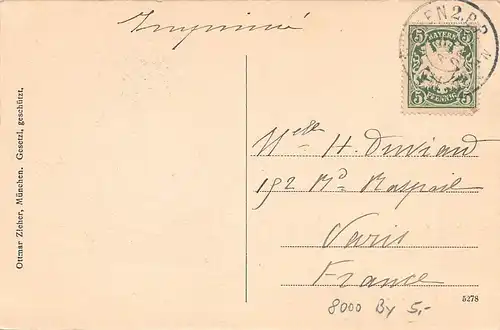 Imprimé
EN 2. B.P.
5 BAYERN 5
5 PFENNIG 5
Mlle H. Duviard
192 Bd Raspail
Paris
France
Ottmar Zieher, München. Gesetzl. geschützt.
5278
8000 By 5,-